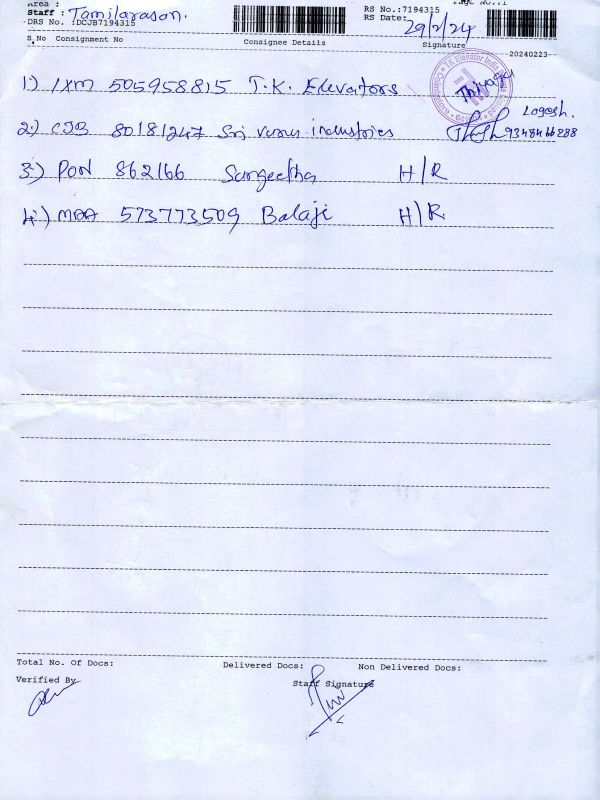 Area :
Staff : Tamilarasan.
DRS No. :DCJB7194315
RS No.:7194315
RS Date: 29/2/24
S.No Consignment No Consignee Details Signature
20240223-
1) IXM 505958815 T.K. Elevators Thiyagu
Logesh.
2) CJB 80181247 Sri varus industries 9348466288
3) PON 862166 Sangeetha H/R
4) MAA 573773509 Balaji H/R
Total No. Of Docs: Delivered Docs: Non Delivered Docs:
Verified By Staff Signature